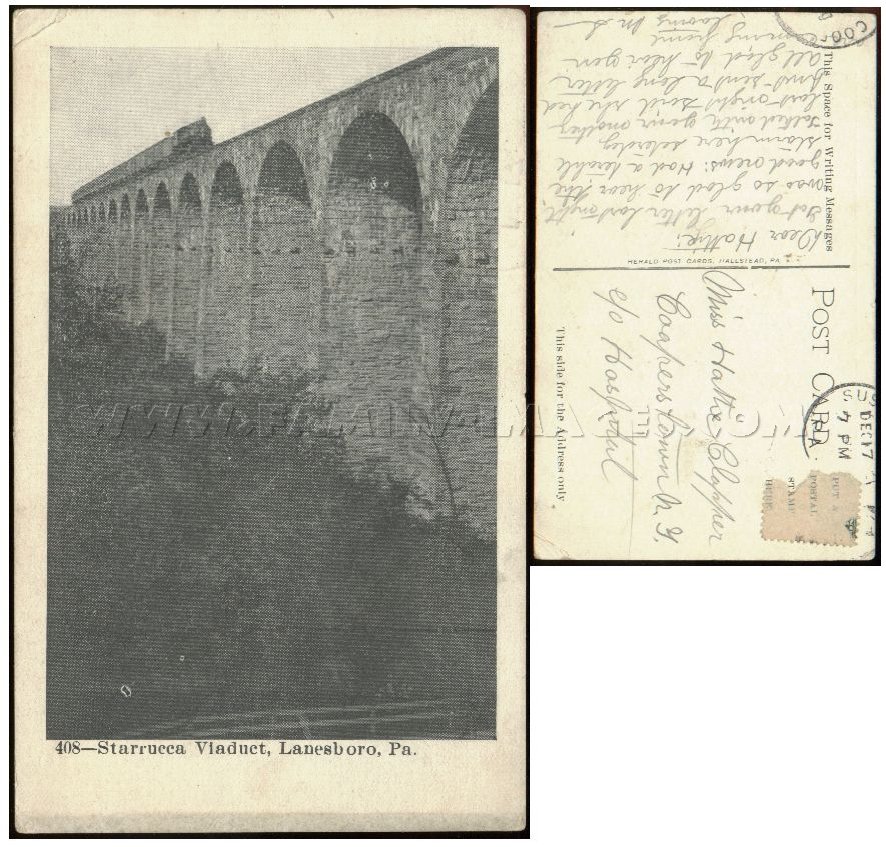 408—Starrucca Viaduct, Lanesboro, Pa.
This Space for Writing Messages
Dear Hattie:
Got your letter last night
was so glad to hear the
good news: Had a terrible
storm here saterday
talked with your
last night said she had
just sent a long letter
all glad to hear you
coming home
HERALD POST CARDS, HALLSTEAD, PA
POST CARD
This side for the Address only
Miss Hattie Clapper
Cooperstown N. Y.
c/o Hospital
PUT A
POSTAL
STAMP
HERE
SUS
DEC 17
4 PM
PA
COO